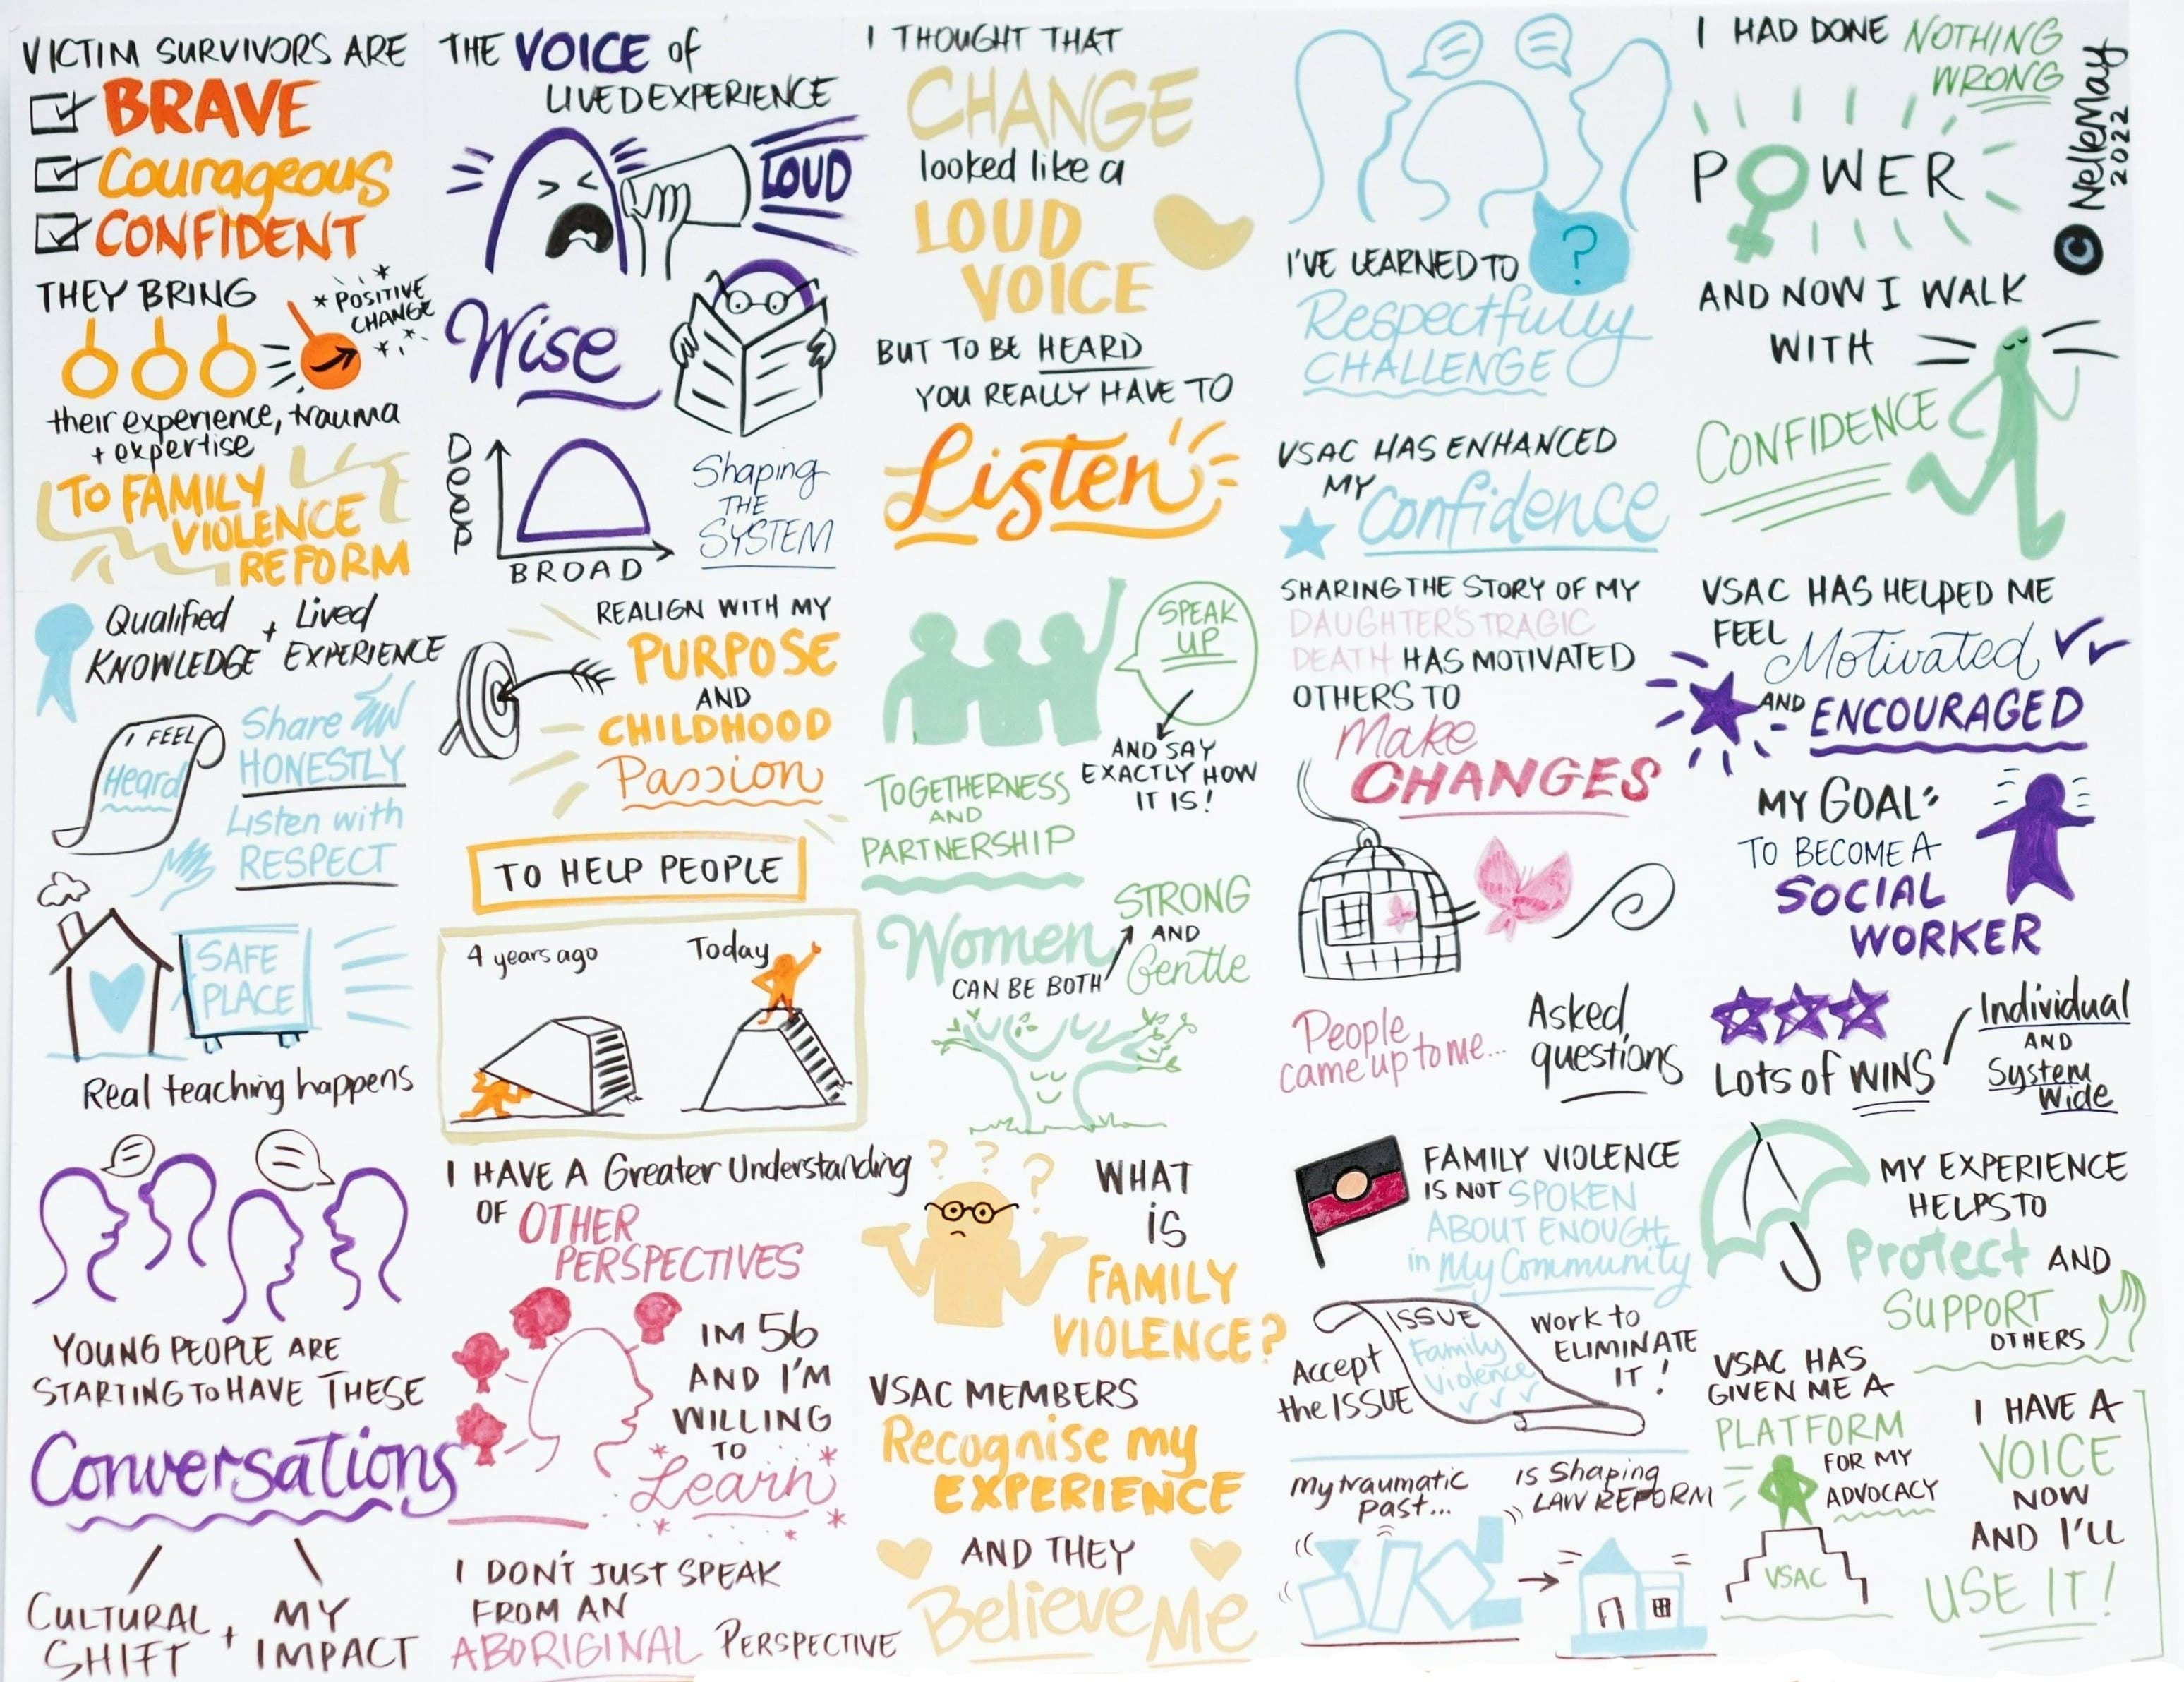 VICTIM SURVIVORS ARE
BRAVE
Courageous
CONFIDENT
THEY BRING
* POSITIVE
CHANGE
their experience, trauma
+ expertise
TO FAMILY
VIOLENCE
REFORM
Qualified + Lived
KNOWLEDGE EXPERIENCE
I FEEL
Heard
Share
HONESTLY
Listen with
RESPECT
SAFE
PLACE
Real teaching happens
YOUNG PEOPLE ARE
STARTING TO HAVE THESE
Conversations
CULTURAL
SHIFT
+
MY
IMPACT
THE VOICE of
LIVED EXPERIENCE
LOUD
Wise
Deep
BROAD
Shaping
THE
SYSTEM
REALIGN WITH MY
PURPOSE
AND
CHILDHOOD
Passion
TO HELP PEOPLE
4 years ago
Today
I HAVE A Greater Understanding
OF OTHER
PERSPECTIVES
IM 56
AND I'M
WILLING
TO
Learn
I DON'T JUST SPEAK
FROM AN
ABORIGINAL PERSPECTIVE
I THOUGHT THAT
CHANGE
looked like a
LOUD
VOICE
BUT TO BE HEARD
YOU REALLY HAVE TO
Listen
SPEAK
UP
AND SAY
EXACTLY HOW
IT IS!
TOGETHERNESS
AND
PARTNERSHIP
Women
CAN BE BOTH
STRONG
AND
Gentle
? ? ?
WHAT
iS
FAMILY
VIOLENCE?
VSAC MEMBERS
Recognise my
EXPERIENCE
AND THEY
Believe Me
?
I'VE LEARNED TO
Respectfully
CHALLENGE
VSAC HAS ENHANCED
MY Confidence
SHARING THE STORY OF MY
DAUGHTER'S TRAGIC
DEATH HAS MOTIVATED
OTHERS TO
Make
CHANGES
People
came up to me...
Asked
questions
FAMILY VIOLENCE
IS NOT SPOKEN
ABOUT ENOUGH
in My Community
Accept
the ISSUE
ISSUE
Family
Violence
Work to
ELIMINATE
IT!
my traumatic
past...
is Shaping
LAW REFORM
I HAD DONE NOTHING
WRONG
POWER
AND NOW I WALK
WITH
CONFIDENCE
© NelleMay
2022
VSAC HAS HELPED ME
FEEL Motivated
AND ENCOURAGED
MY GOAL:
TO BECOME A
SOCIAL
WORKER
Lots of WINS
Individual
AND
System
Wide
MY EXPERIENCE
HELPS TO
Protect AND
SUPPORT
OTHERS
VSAC HAS
GIVEN ME A
PLATFORM
FOR MY
ADVOCACY
VSAC
I HAVE A
VOICE
NOW
AND I'LL
USE IT!